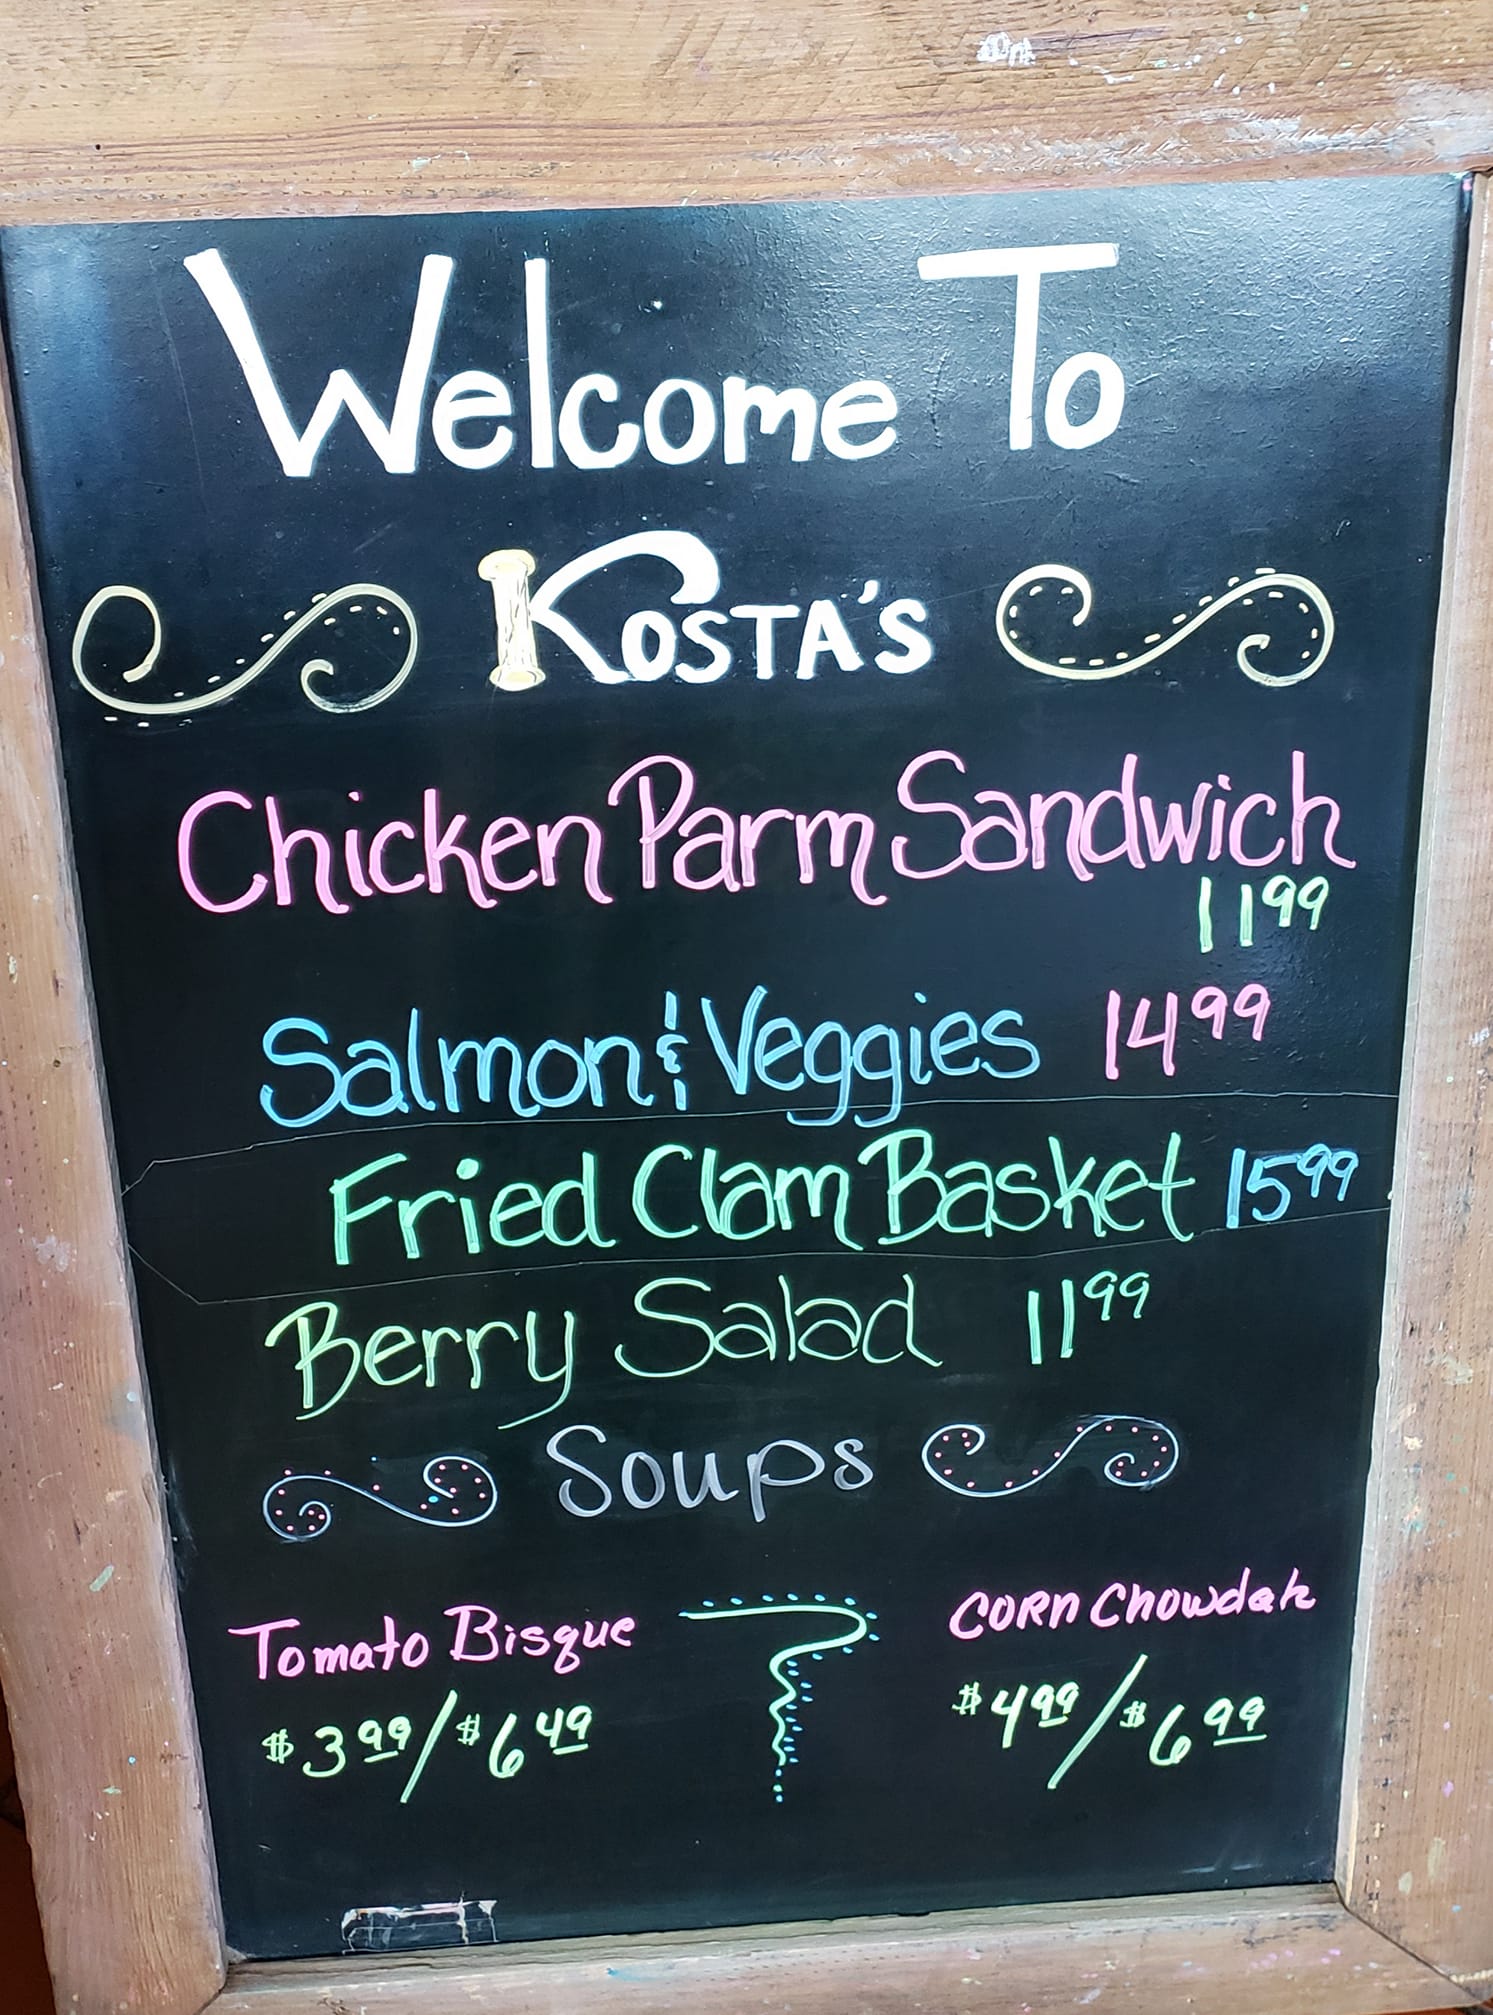 Welcome To
Kosta's
Chicken Parm Sandwich
11.99
Salmon & Veggies 14.99
Fried Clam Basket 15.99
Berry Salad 11.99
Soups
Tomato Bisque
$3.99/$6.49
Corn Chowdah
$4.99/$6.99